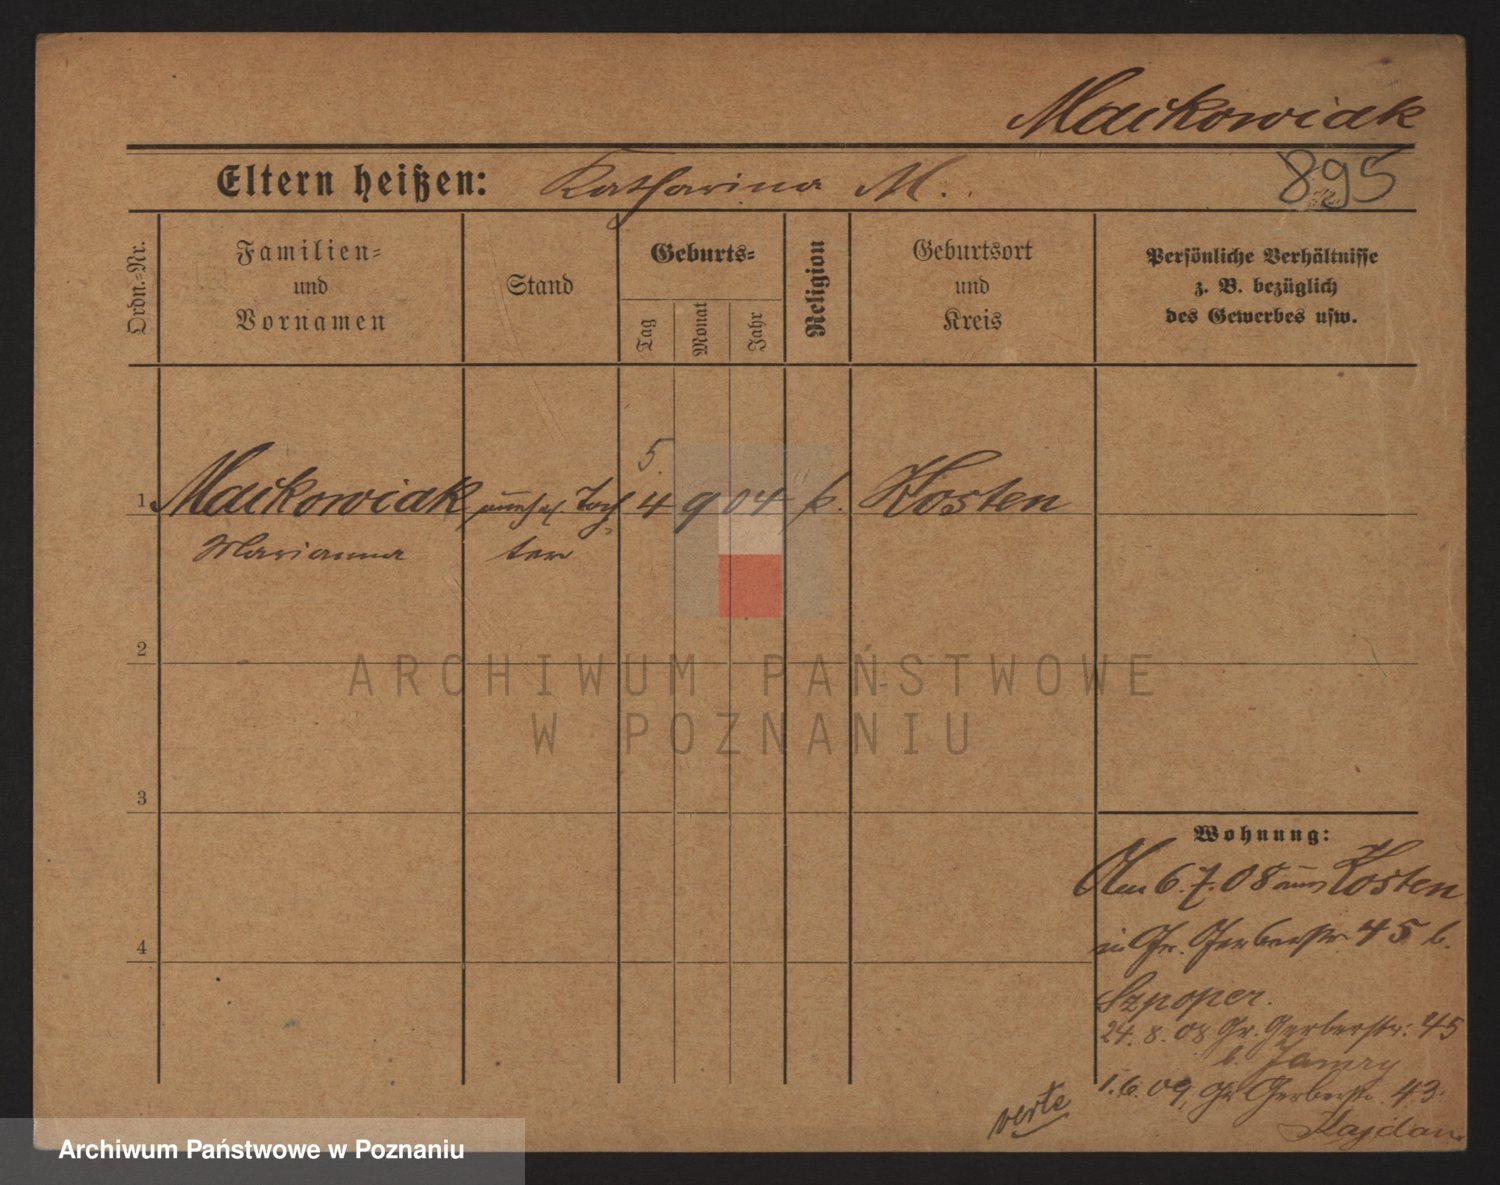 Maćkowiak
Eltern heißen: Katharina M.
895
Ordn.-Nr.
Familien-
und
Vornamen
Stand
Geburts-
Tag
Monat
Jahr
Religion
Geburtsort
und
Kreis
Persönliche Verhältnisse
z. B. bezüglich
des Gewerbes usw.
5.
1 Maćkowiak unehel. Toch 4 9 04 k. Kosten
Marianna ter
2
ARCHIWUM PAŃSTWOWE
W POZNANIU
3
Wohnung:
Am 6.7.08 aus Kosten
in Gr. Gerberstr. 45 b.
24. 8. 08 Gr. Gerberstr. 45
b.
1. 6. 09, Gr Gerberstr. 43.
4
verte
Archiwum Państwowe w Poznaniu